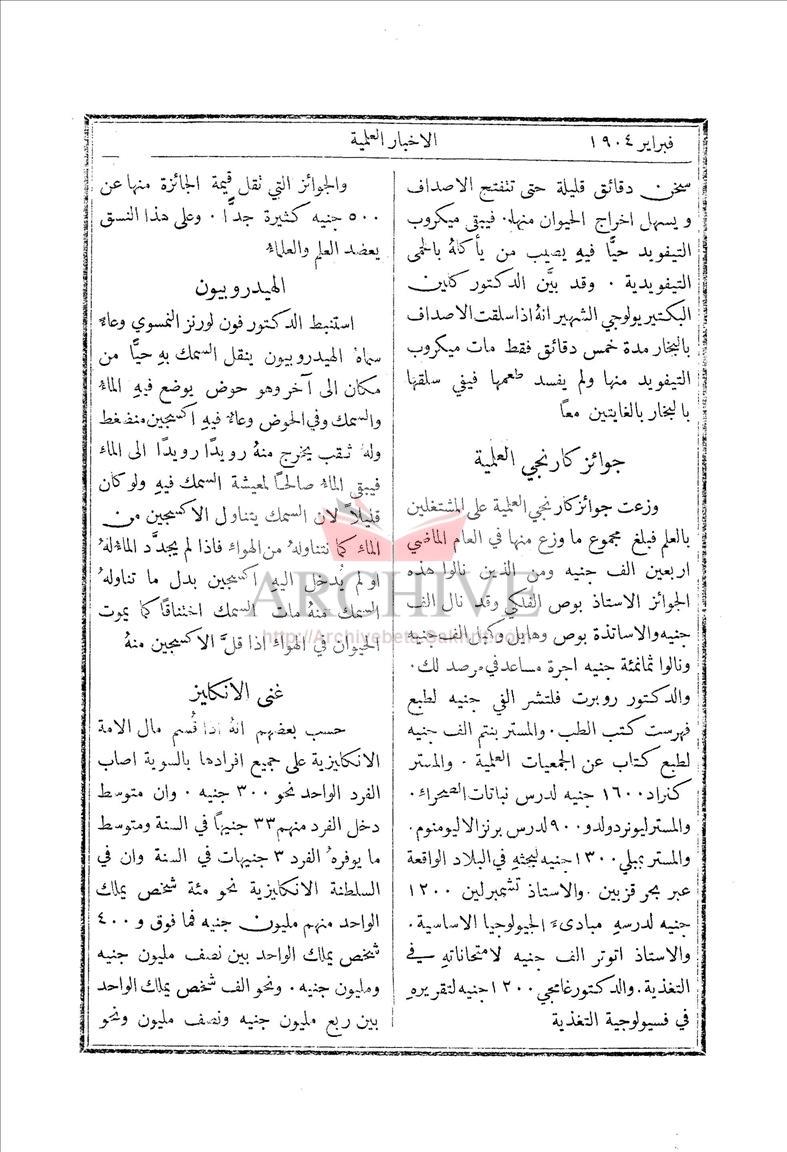 فبراير ١٩٠٤
الاخبار العلمية
سخن دقائق قليلة حتى تنفتح الاصداف
ويسهل اخراج الحيوان منها. فيبقى ميكروب
التيفويد حيًّا فيهِ يصيب من يأكلهُ بالحمى
التيفويدية . وقد بيَّن الدكتور كلين
البكتيريولوجي الشهير انهُ اذا سلقت الاصداف
بالبخار مدة خمس دقائق فقط مات ميكروب
التيفويد منها ولم يفسد طعمها فيفي سلقها
بالبخار بالغايتين معًا
جوائز كارنجي العلمية
وزعت جوائز كارنجي العلمية على المشتغلين
بالعلم فبلغ مجموع ما وزع منها في العام الماضي
اربعين الف جنيه ومن الذين نالوا هذه
الجوائز الاستاذ بوص الفلكي وقد نال الف
جنيه والاساتذة بوص وهايل وكبل الف جنيه
ونالوا ثمانمئة جنيه اجرة مساعد في مرصد لك.
والدكتور روبرت فلتشر الفي جنيه لطبع
فهرست كتب الطب. والمستر بنتم الف جنيه
لطبع كتاب عن الجمعيات العلمية . والمستر
كنراد ١٦٠٠ جنيه لدرس نباتات الصحراء.
والمستر ليونرد ولدو ٩٠٠ لدرس برنز الاليومنوم.
والمستر بمبلي ١٣٠٠ جنيه لبحثهِ في البلاد الواقعة
عبر بحر قزبين. والاستاذ تشمبرلين ١٢٠٠
جنيه لدرسهِ مبادىء الجيولوجيا الاساسية .
والاستاذ اتوتر الف جنيه لامتحاناتهِ في
التغذية. والدكتور غامجي ١٢٠٠ جنيه لتقريرهِ
في فسيولوجية التغذية
والجوائز التي تقل قيمة الجائزة منها عن
٥٠٠ جنيه كثيرة جدًّا . وعلى هذا النسق
يعضد العلم والعلماء
الهيدروبيون
استنبط الدكتور فون لورنز النمسوي وعاءً
سماهُ الهيدروبيون ينقل السمك بهِ حيًّا من
مكان الى آخر وهو حوض يوضع فيهِ الماءُ
والسمك وفي الحوض وعاء فيهِ اكسيجين منضغط
ولهُ ثقب يخرج منهُ رويدًا رويدًا الى الماء
فيبقى الماءُ صالحًا لمعيشة السمك فيهِ ولو كان
قليلًا لان السمك يتناول الاكسيجين من
الماء كما نتناولهُ من الهواء فاذا لم يجدَّد الماءُ لهُ
او لم يُدخل اليهِ اكسيجين بدل ما تناولهُ
السمك منهُ مات السمك اختناقًا كما يموت
الحيوان في الهواء اذا قلَّ الاكسيجين منهُ
غنى الانكليز
حسب بعضهم انهُ اذا قُسم مال الامة
الانكليزية على جميع افرادها بالسوية اصاب
الفرد الواحد نحو ٣٠٠ جنيه . وان متوسط
دخل الفرد منهم ٣٣ جنيهًا في السنة ومتوسط
ما يوفرهُ الفرد ٣ جنيهات في السنة وان في
السلطنة الانكليزية نحو مئة شخص يملك
الواحد منهم مليون جنيه فما فوق و ٤٠٠
شخص يملك الواحد بين نصف مليون جنيه
ومليون جنيه . ونحو الف شخص يملك الواحد
بين ربع مليون جنيه ونصف مليون ونحو
ARCHIVE